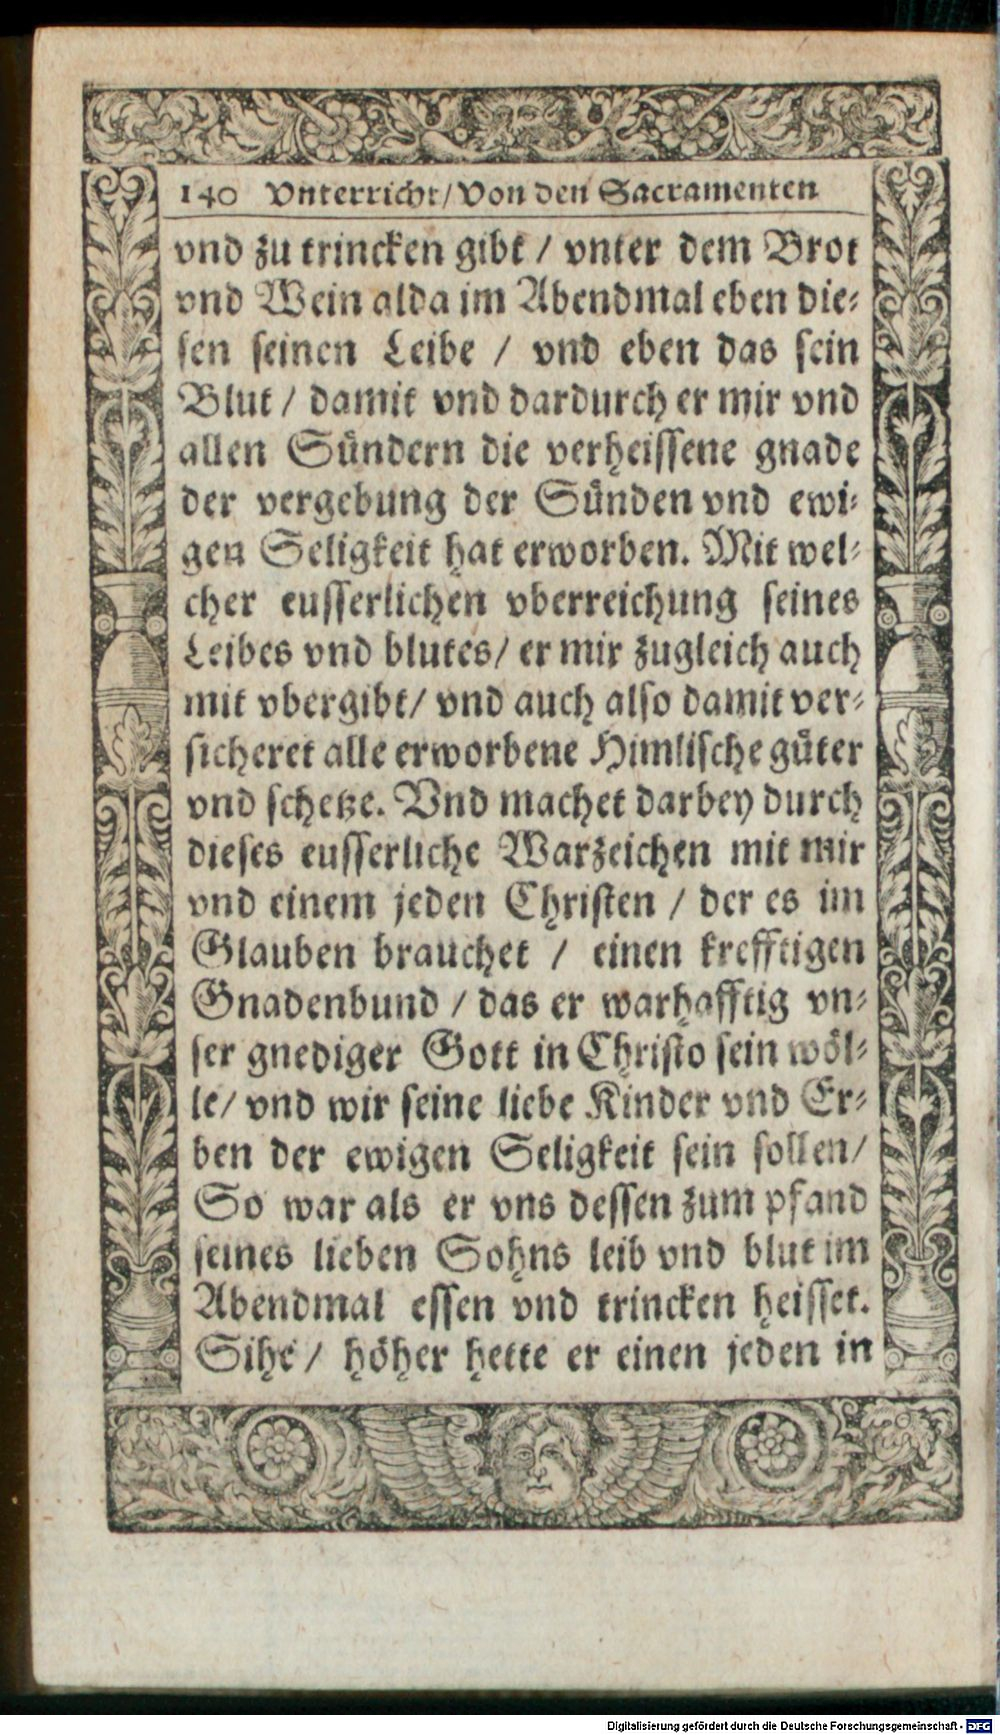 140 Vnterricht/Von den Sacramenten
vnd zu trincken gibt / vnter dem Brot
vnd Wein alda im Abendmal eben die⸗
sen seinen Leibe / vnd eben das sein
Blut / damit vnd dardurch er mir vnd
allen Sündern die verheissene gnade
der vergebung der Sünden vnd ewi⸗
gen Seligkeit hat erworben. Mit wel⸗
cher eusserlichen vberreichung seines
Leibes vnd blutes/ er mir zugleich auch
mit vbergibt/ vnd auch also damit ver⸗
sicheret alle erworbene Himlische güter
vnd schetze. Vnd machet darbey durch
dieses eusserliche Warzeichen mit mir
vnd einem jeden Christen / der es im
Glauben brauchet / einen krefftigen
Gnadenbund / das er warhafftig vn⸗
ser gnediger Gott in Christo sein wöl⸗
le/ vnd wir seine liebe Kinder vnd Er⸗
ben der ewigen Seligkeit sein sollen/
So war als er vns dessen zum pfand
seines lieben Sohns leib vnd blut im
Abendmal essen vnd trincken heisset.
Sihe / höher hette er einen jeden in
Digitalisierung gefördert durch die Deutsche Forschungsgemeinschaft - DFG